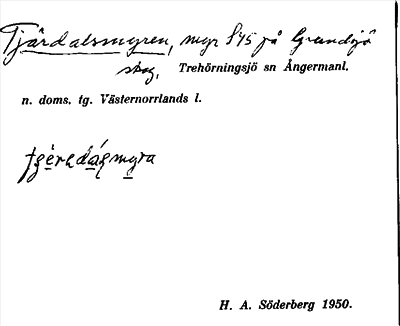 Tjärdalsmyren, myr S45 på Grundsjö
skog, Trehörningsjö sn Ångermanl.
n. doms. tg. Västernorrlands l.
H. A. Söderberg 1950.